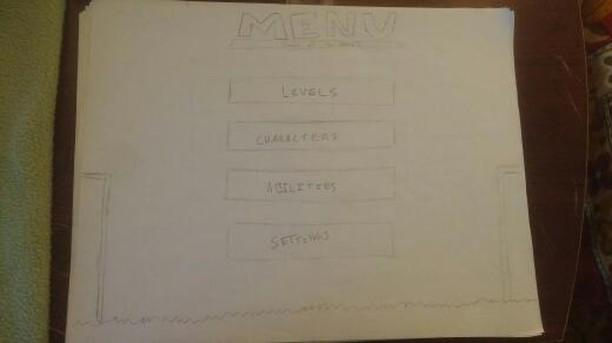 MENU
LEVELS
CHARACTERS
ABILITIES
SETTINGS